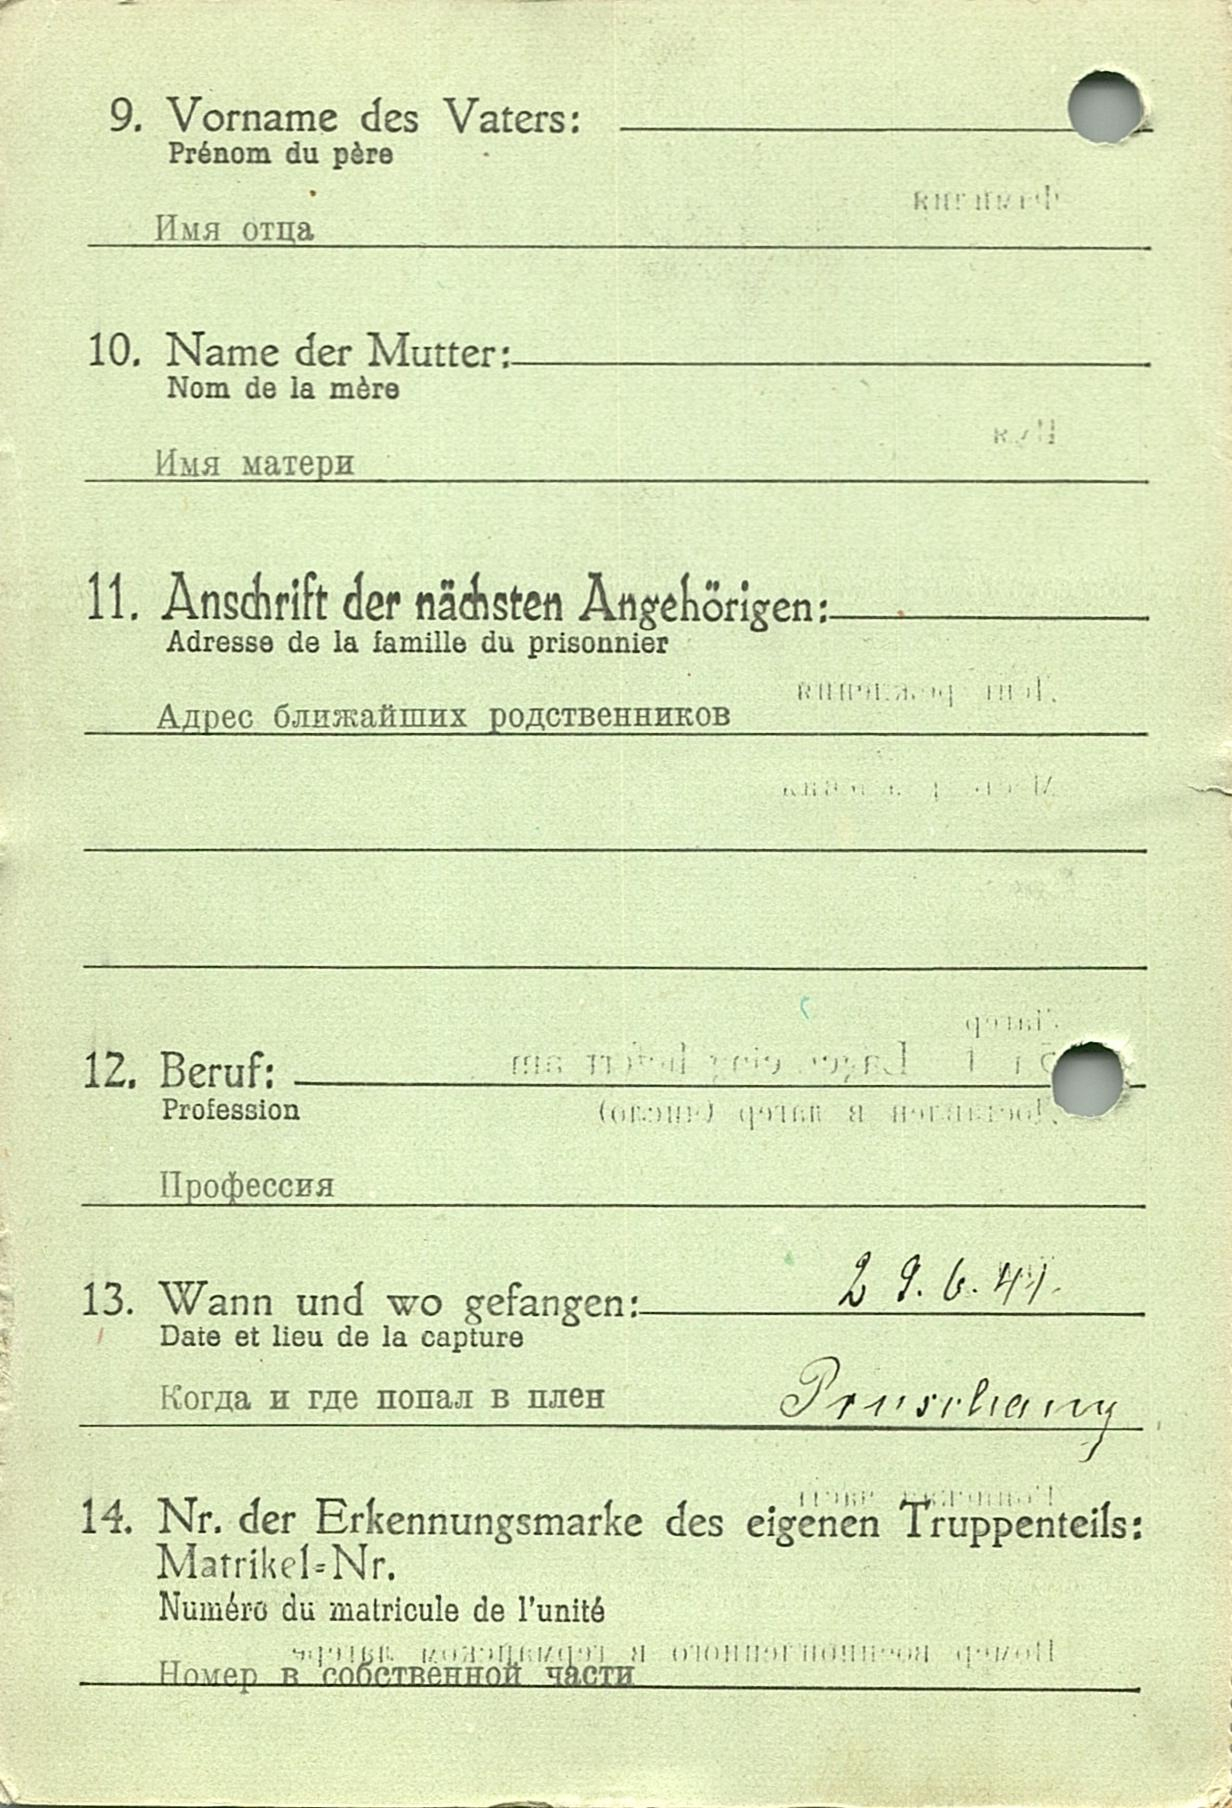 9. Vorname des Vaters:
Prénom du père
Имя отца
10. Name der Mutter:
Nom de la mère
Имя матери
11. Anschrift der nächsten Angehörigen:
Adresse de la famille du prisonnier
Адрес ближайших родственников
12. Beruf:
Profession
Профессия
13. Wann und wo gefangen: 29.6.41.
Date et lieu de la capture
Когда и где попал в плен Pruschany
14. Nr. der Erkennungsmarke des eigenen Truppenteils:
Matrikel-Nr.
Numéro du matricule de l'unité
Номер в собственной части